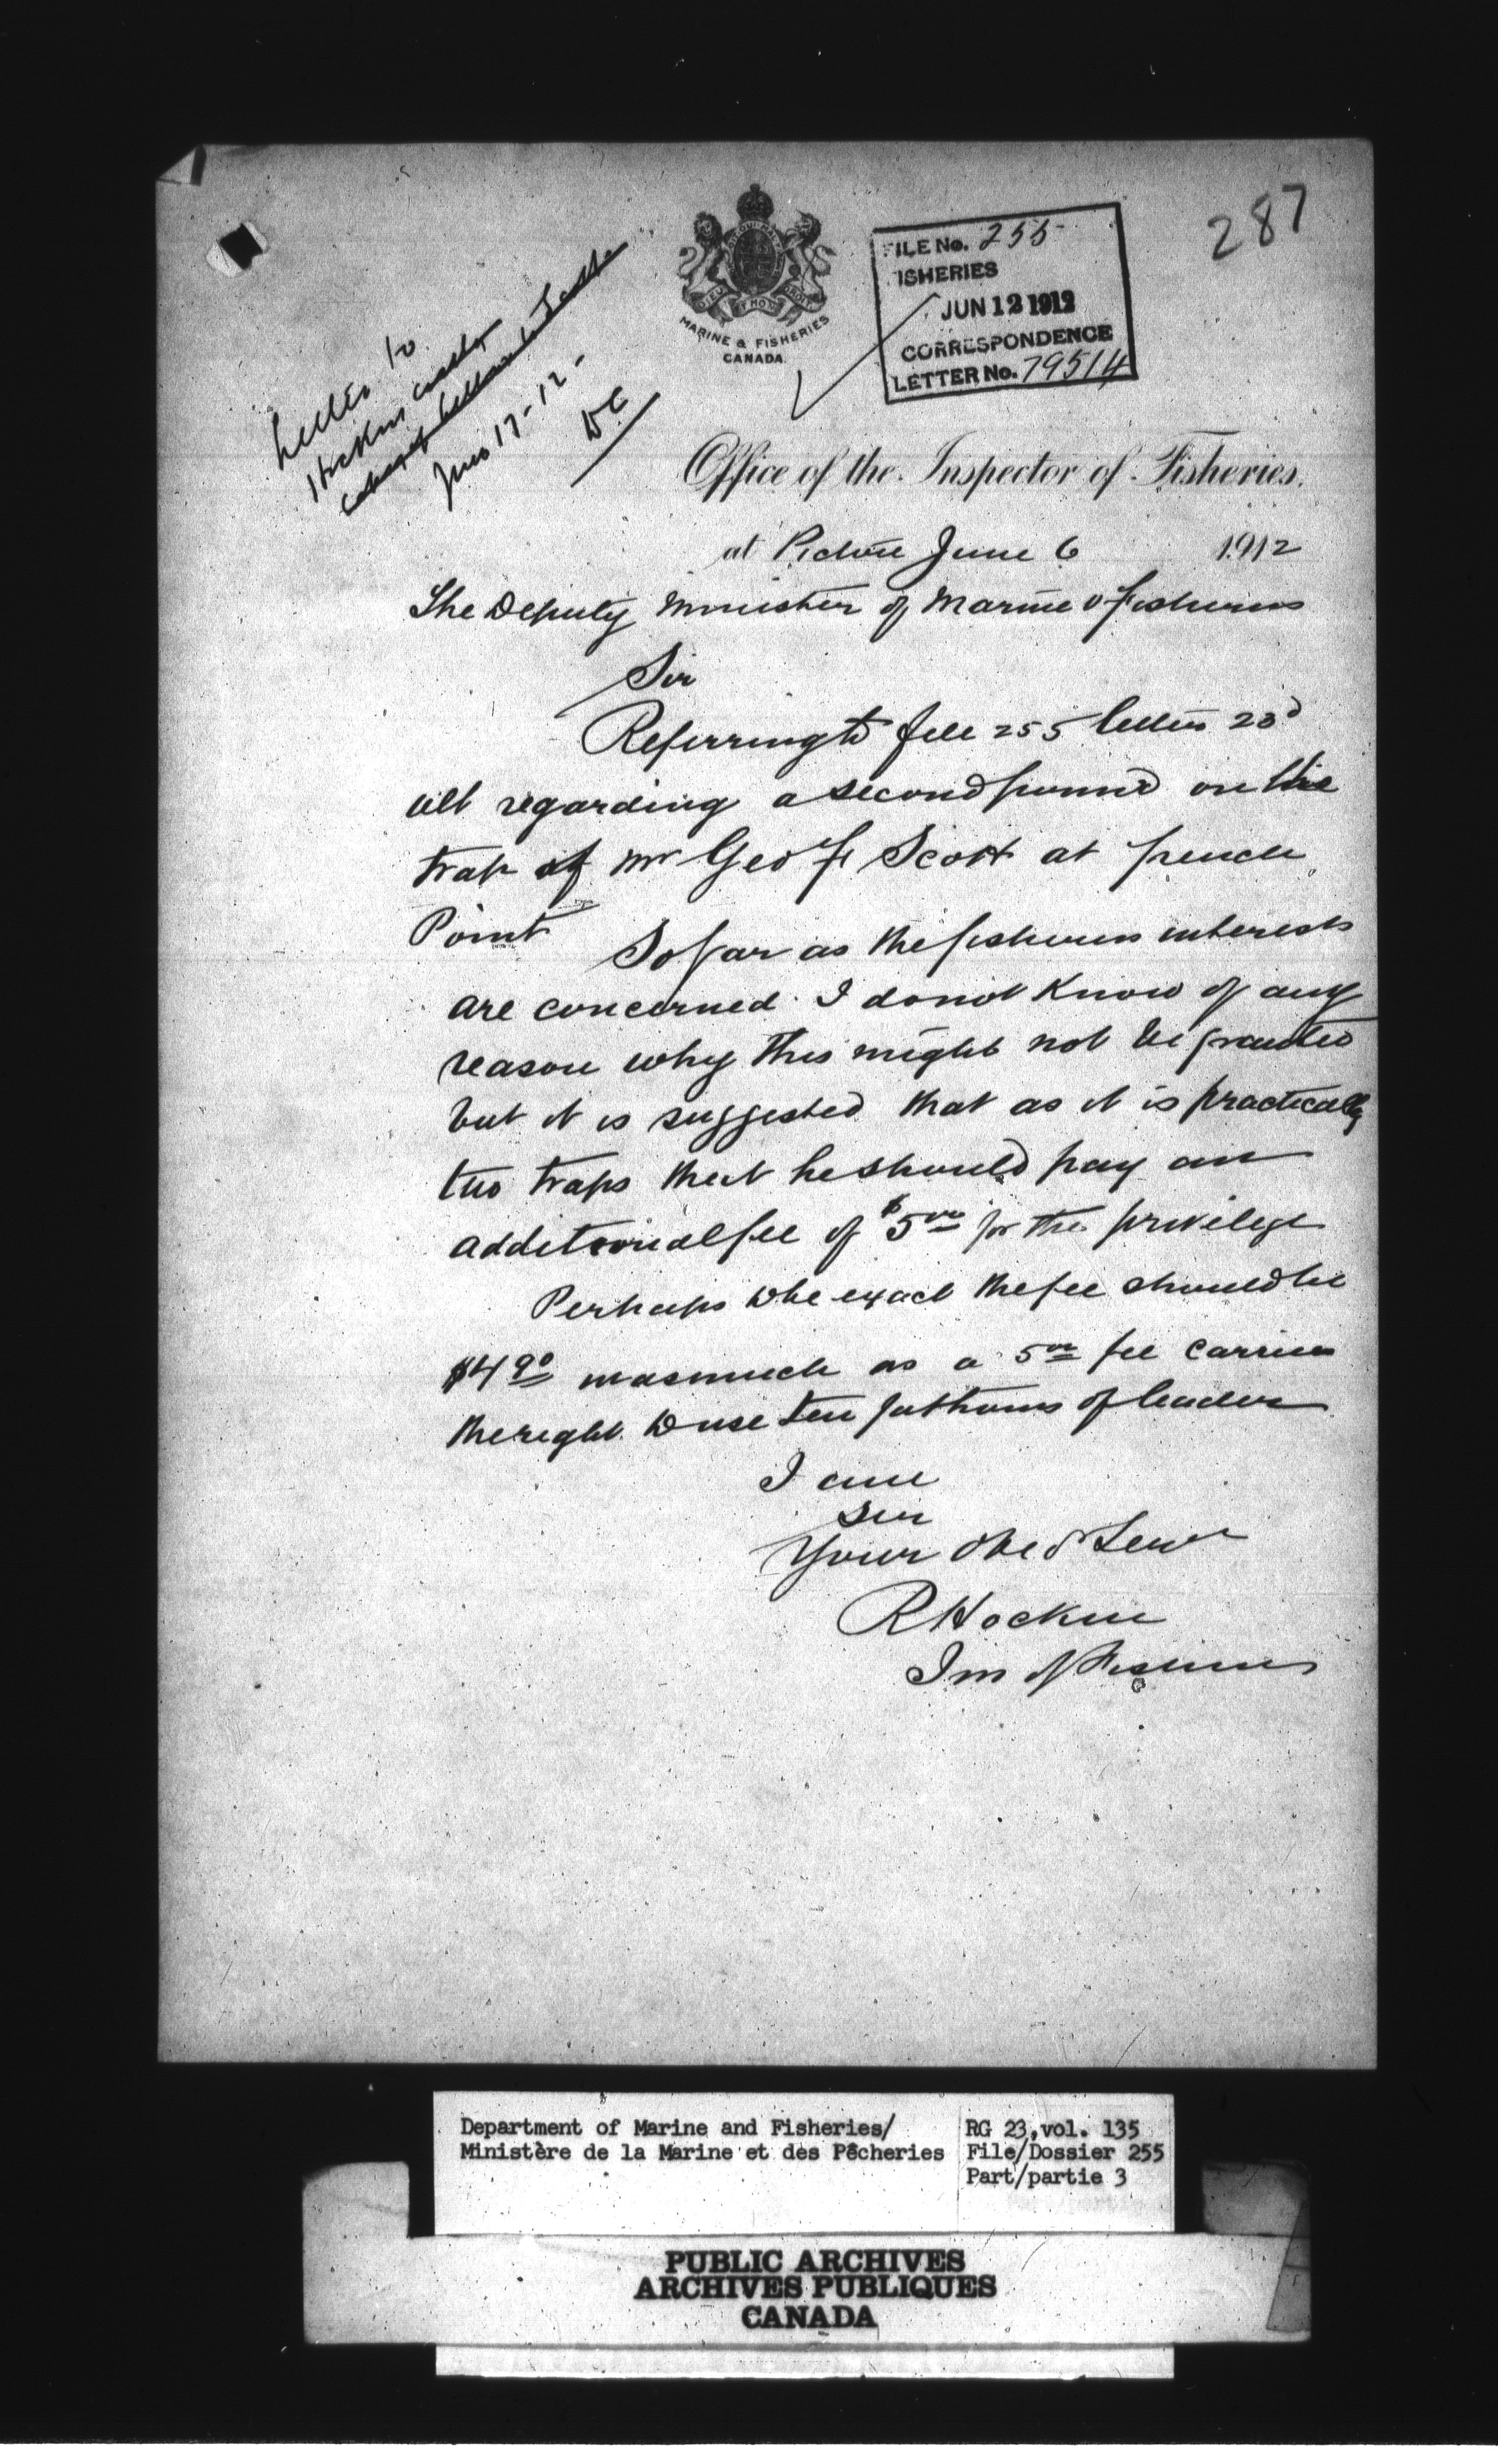 287
FILE No. 255
FISHERIES
JUN 12 1912
CORRESPONDENCE
LETTER No. 79514
DIEU ET MON DROIT
MARINE & FISHERIES
CANADA.
Letter to
Hockin
June 17-12-
Office of the Inspector of Fisheries.
at Pictou June 6 1912
The Deputy Minister of Marine & Fisheries
Sir
Referring to file 255 letter 23d
ult regarding a second pound on the
trap of Mr Geo F Scott at french
Point
So far as the fisheries interests
are concerned I do not know of any
reason why this might not be granted
but it is suggested that as it is practically
two traps that he should pay an
additional fee of $5 00 for the privilege
Perhaps to be exact the fee should be
$4 90 inasmuch as a 5 00 fee carries
the right to use ten fathoms of leader
I am
Sir
Your obed Servt
R Hockin
Ins of Fisheries
Department of Marine and Fisheries/
Ministère de la Marine et des Pêcheries
RG 23, vol. 135
File/Dossier 255
Part/partie 3
PUBLIC ARCHIVES
ARCHIVES PUBLIQUES
CANADA